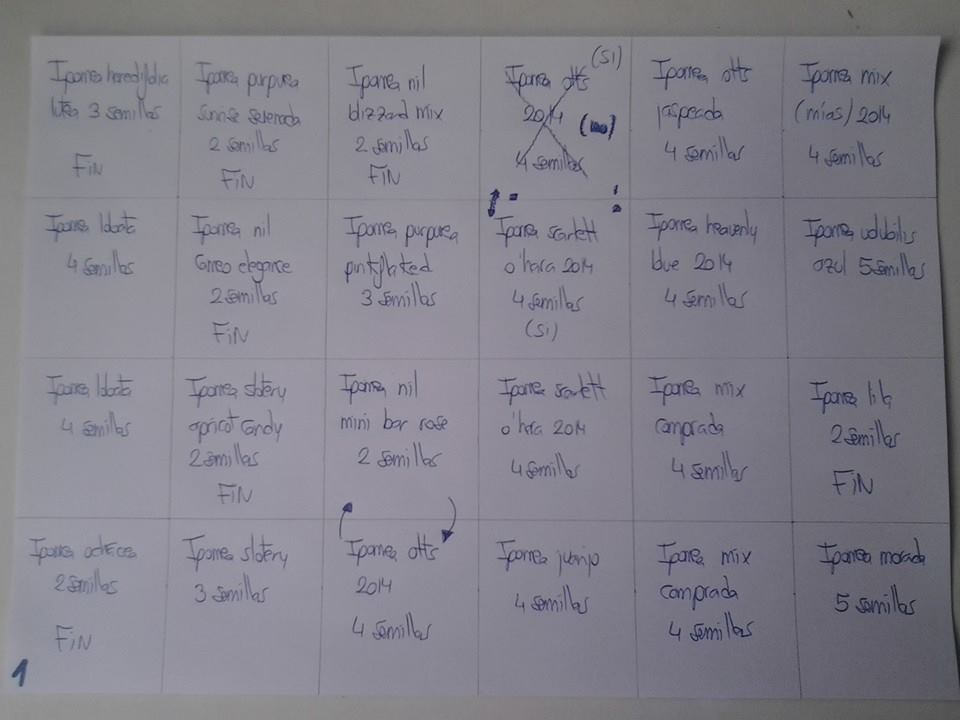 Ipomea hederifolia
lutea 3 semillas
FIN
Ipomea purpurea
sunrise serenada
2 semillas
FIN
Ipomea nil
blizzard mix
2 semillas
FIN
Ipomea otts (Si)
2014 (no)
4 semillas
Ipomea otts
jaspeada
4 semillas
Ipomea mix
(mías) 2014
4 semillas
Ipomea lobata
4 semillas
Ipomea nil
cameo elegance
2 semillas
FIN
Ipomea purpurea
pinkflaked
3 semillas
Ipomea scarlett
o'hara 2014
4 semillas
(Si)
Ipomea heavenly
blue 2014
4 semillas
Ipomea volubilis
azul 5 semillas
Ipomea lobata
4 semillas
Ipomea slotery
apricot candy
2 semillas
FIN
Ipomea nil
mini bar rose
2 semillas
Ipomea scarlett
o'hara 2014
4 semillas
Ipomea mix
comprada
4 semillas
Ipomea lila
2 semillas
FIN
Ipomea
2 semillas
FIN
Ipomea slotery
3 semillas
Ipomea otts
2014
4 semillas
Ipomea juanjo
4 semillas
Ipomea mix
comprada
4 semillas
Ipomea morada
5 semillas
1